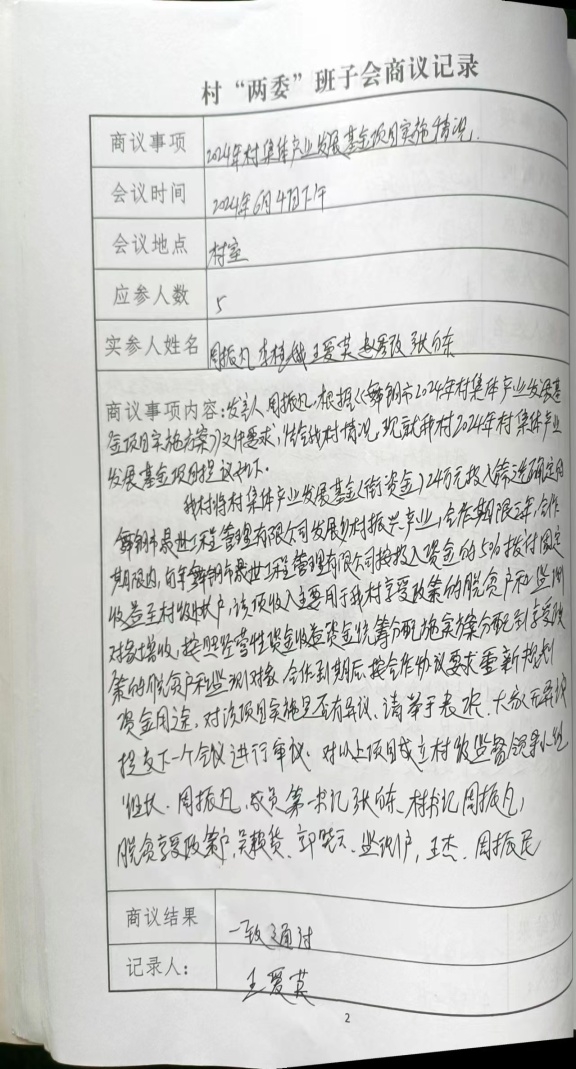 村“两委”班子会商议记录
商议事项 2024年村集体产业发展基金项目实施情况.
会议时间 2024年6月4日下午
会议地点 村室
应参人数 5
实参人姓名 周振凡 李桂娥 王爱英 赵 张东
商议事项内容:发言人周振凡,根据《舞钢市2024年村集体产业发展基
金项目实施方案》文件要求,结合我村情况,现就我村2024年村集体产业
发展基金项目提议如下.
我村将村集体产业发展基金(衔资金)24万元投入筛选确定的
舞钢市晟世工程管理有限公司发展乡村振兴产业,合作期限三年,合作
期限内,每年舞钢市晟世工程管理有限公司按投入资金的5%拨付固定
收益至村级账户,该项收入主要用于我村享受政策的脱贫户和监测
对象增收,按照经营性资金收益资金统筹分配实施方案分配到享受政
策的脱贫户和监测对象,合作到期后,按合作协议要求重新规划
资金用途,对该项目实施是否有异议、请举手表决.大家无异议
提交下一个会议进行审议.对以上项目成立村级监督领导小组
组长.周振凡,成员第一书记张东、村书记周振凡,
脱贫享受政策户,吴 郭 监测户,王杰.周振民
商议结果 一致通过
记录人: 王爱英
2